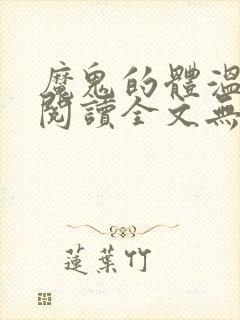 魔鬼的體溫
閱讀全文無
蓮葉竹